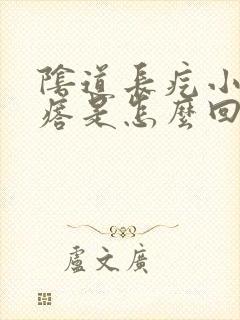 陰道長疙小
瘩是怎麼回
盧文廣